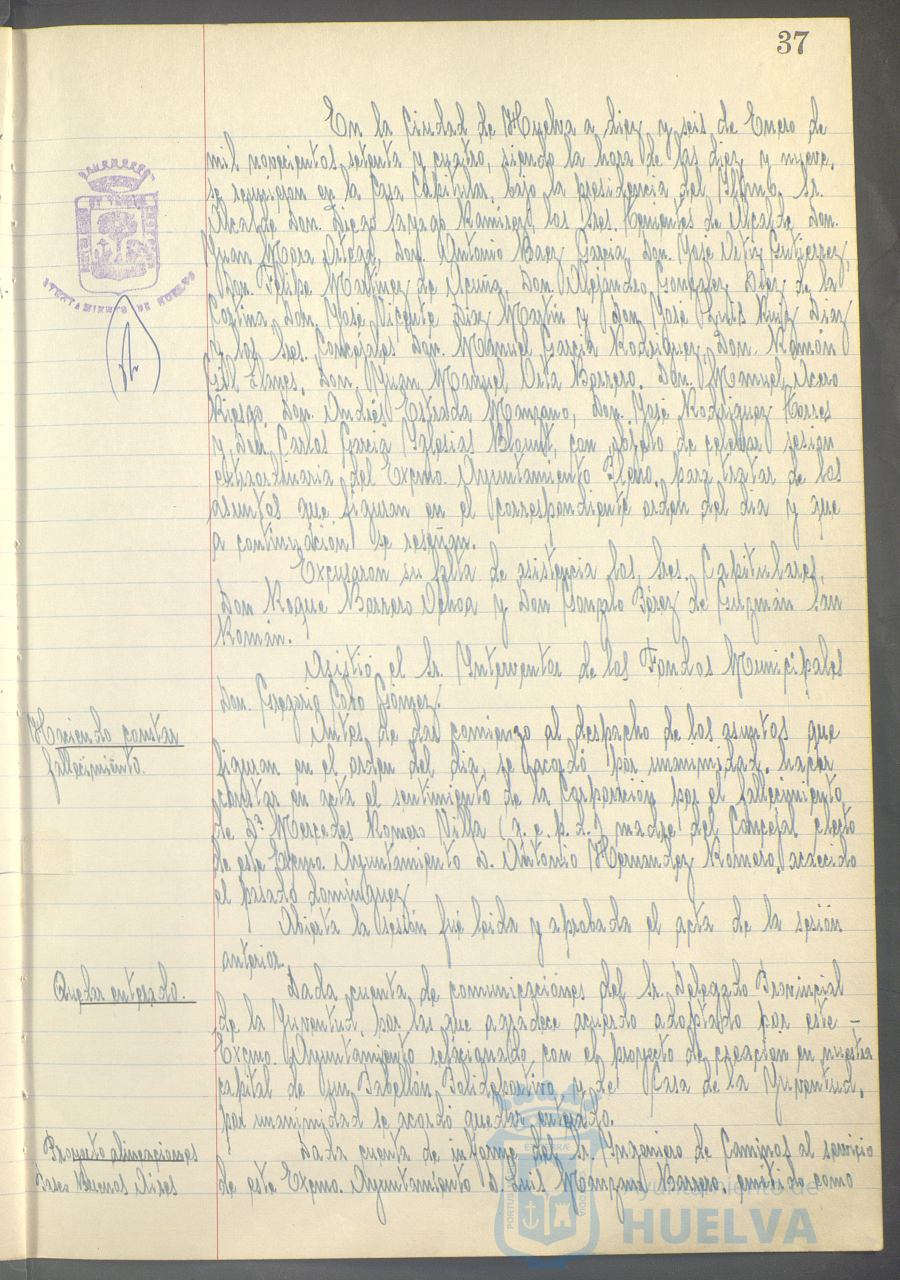 37
En la Ciudad de Huelva a diez y seis de Enero de
mil novecientos setenta y cuatro, siendo la hora de las diez y nueve,
se reunieron en la Casa Capitular, bajo la presidencia del Iltmo. Sr.
Alcalde Don. Diego Sayago Ramirez, los Sres. Tenientes de Alcalde Don.
Juan Mora Ortega, Don. Antonio Baez Garcia, Don. José Ortiz Gutierrez,
Don. Felipe Martinez de Acuña, Don. Alejandro Gonzalez Diaz de la
Cortina, Don. José Vicente Diaz Martin y Don José Luis Ruiz Diaz
y los Sres. Concejales Don. Manuel Garcia Rodriguez, Don. Ramón
Gill Llanes, Don. Juan Manuel Orta Barrero, Don. Manuel Acero
Riesgo, Don. Andrés Estrada Manzano, Don. José Rodriguez Torres
y Don. Carlos Garcia Iglesias Blount, con objeto de celebrar sesion
extraordinaria del Excmo. Ayuntamiento Pleno, para tratar de los
asuntos que figuran en el correspondiente orden del dia y que
a continuacion se reseñan.
Excusaron su falta de asistencia los, Sres. Capitulares,
Don Roque Barrero Ochoa y Don Gonzalo Pérez de Guzmán San
Román.
Asistió el Sr. Interventor de los Fondos Municipales
Don. Gregorio Cabo Gómez.
Haciendo constar
fallecimiento.
Antes de dar comienzo al despacho de los asuntos que
figuran en el orden del dia, se acordó por unanimidad, hacer
constar en acta el sentimiento de la Corporación por el fallecimiento
de Dª Mercedes Romero Villa (q. e. p. d.) madre del Concejal electo
de este Excmo. Ayuntamiento D. Antonio Hernandez Romero, acaecido
el pasado dominguez
Abierta la sesión fué leida y aprobada el acta de la sesión
anterior.
Quedar enterado.
Dada cuenta de comunicaciones del Sr. Delegado Provincial
de la Juventud, por las que agradece acuerdo adoptado por este -
Excmo. Ayuntamiento relacionado, con el proyecto de creación en nuestra
capital de un Pabellón Polideportivo y de Casa de la Juventud,
por unanimidad se acordó quedar enterado.
Proyecto alineaciones
Paseo Buenos Aires
Dada cuenta de informe del Sr. Ingeniero de Caminos al servicio
de este Excmo. Ayuntamiento D. Luis Manzano Barrero, emitido como
AYUNTAMIENTO DE HUELVA
Ayuntamiento de
HUELVA